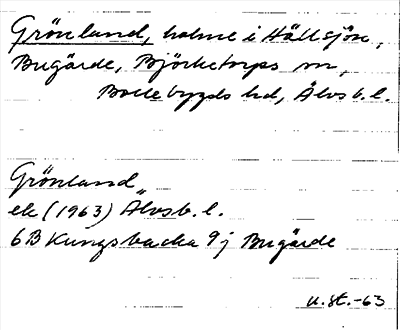 Grönland, holme i Hällsjön,
Bugärde, Björketorps sn,
Bollebygds hd, Älvsb. l.
Grönland
ek (1963) Älvsb. l.
6B Kungsbacka 9j Bugärde
u.st.-63